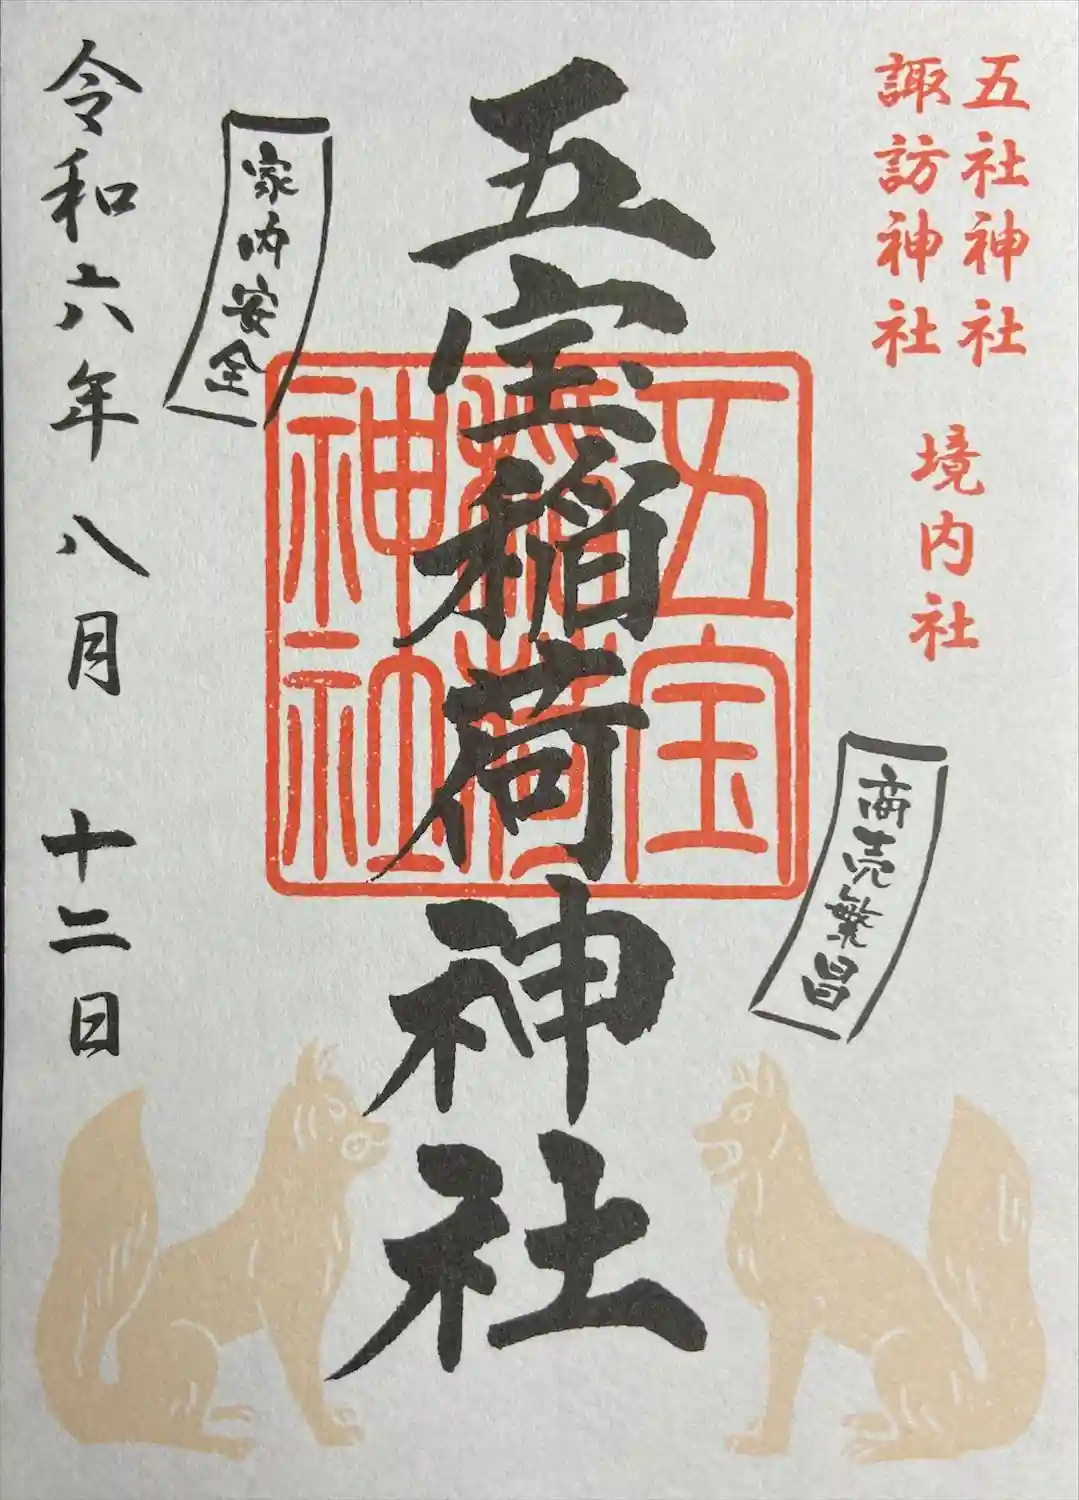 五社神社
諏訪神社
境内社
商売繁昌
五宝稲荷神社
五宝
稲荷
神社
家内安全
令和六年八月十二日